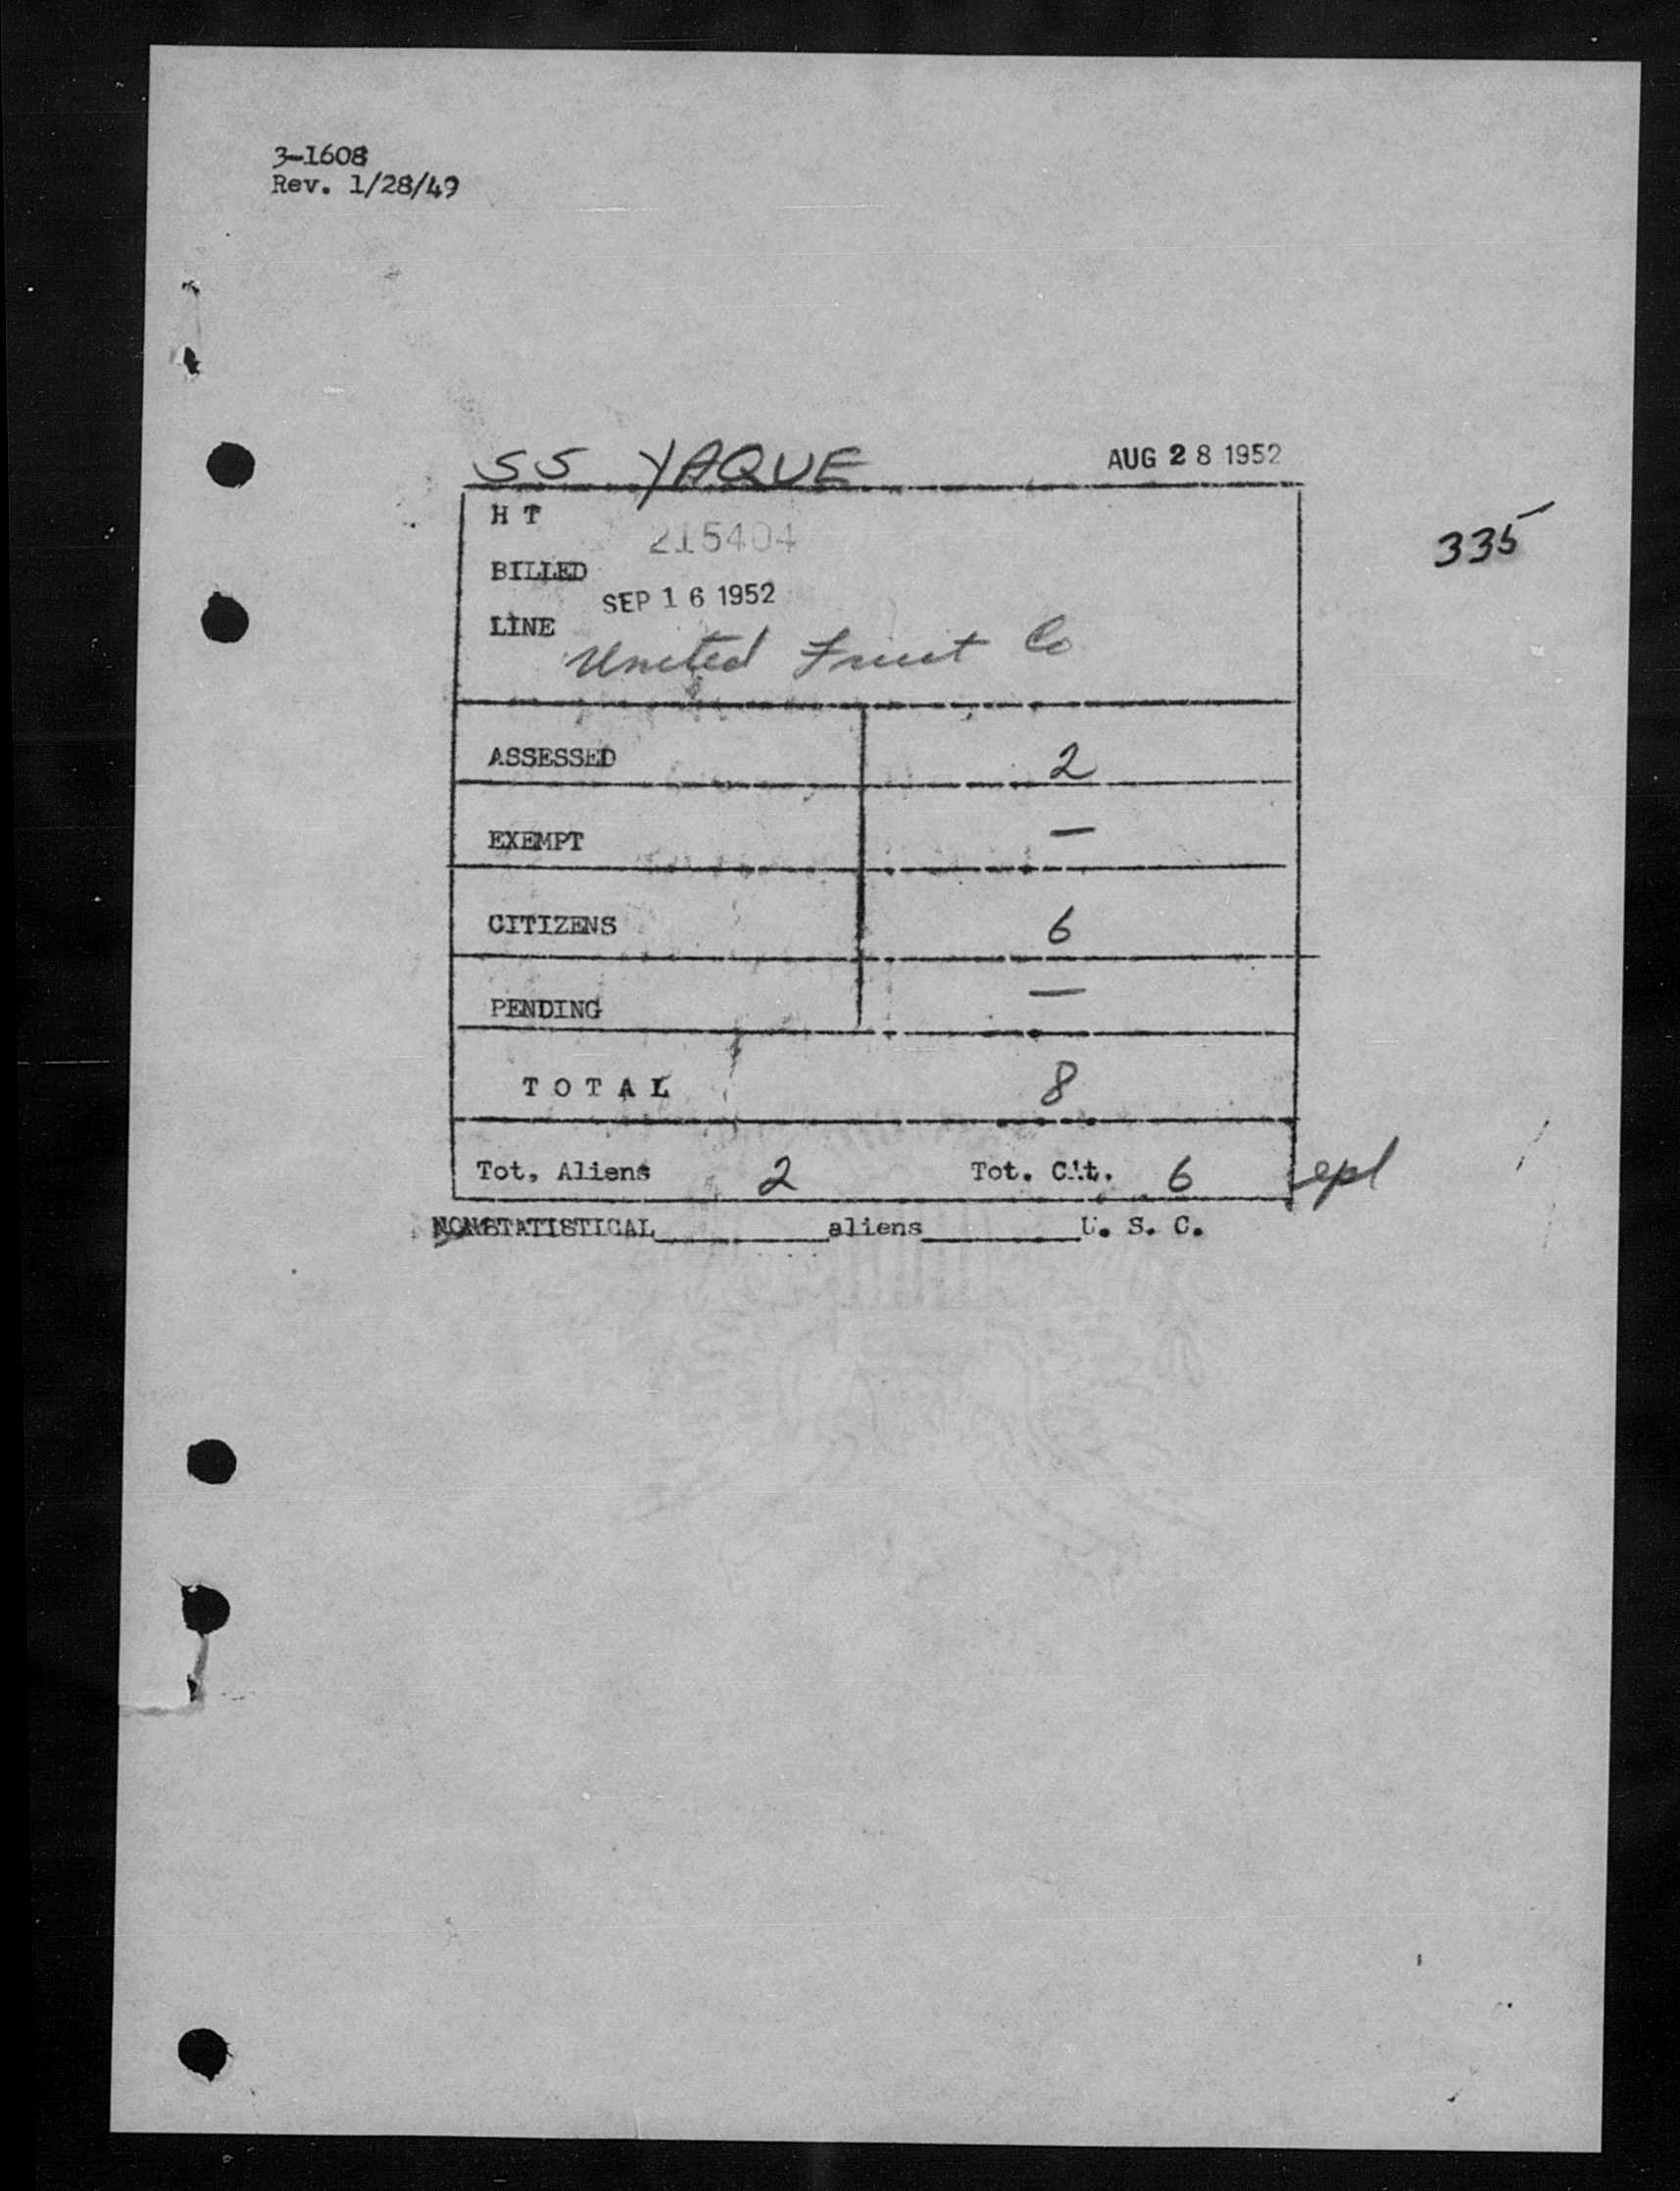 3-1608
Rev. 1/28/49
SS YAQUE AUG 28 1952
H T
215404
335
BILLED
SEP 16 1952
LINE
United Fruit Co
ASSESSED 2
EXEMPT —
CITIZENS 6
PENDING —
T O T A L 8
Tot. Aliens 2 Tot. Cit. 6
NONSTATISTICAL__________aliens__________U. S. C.